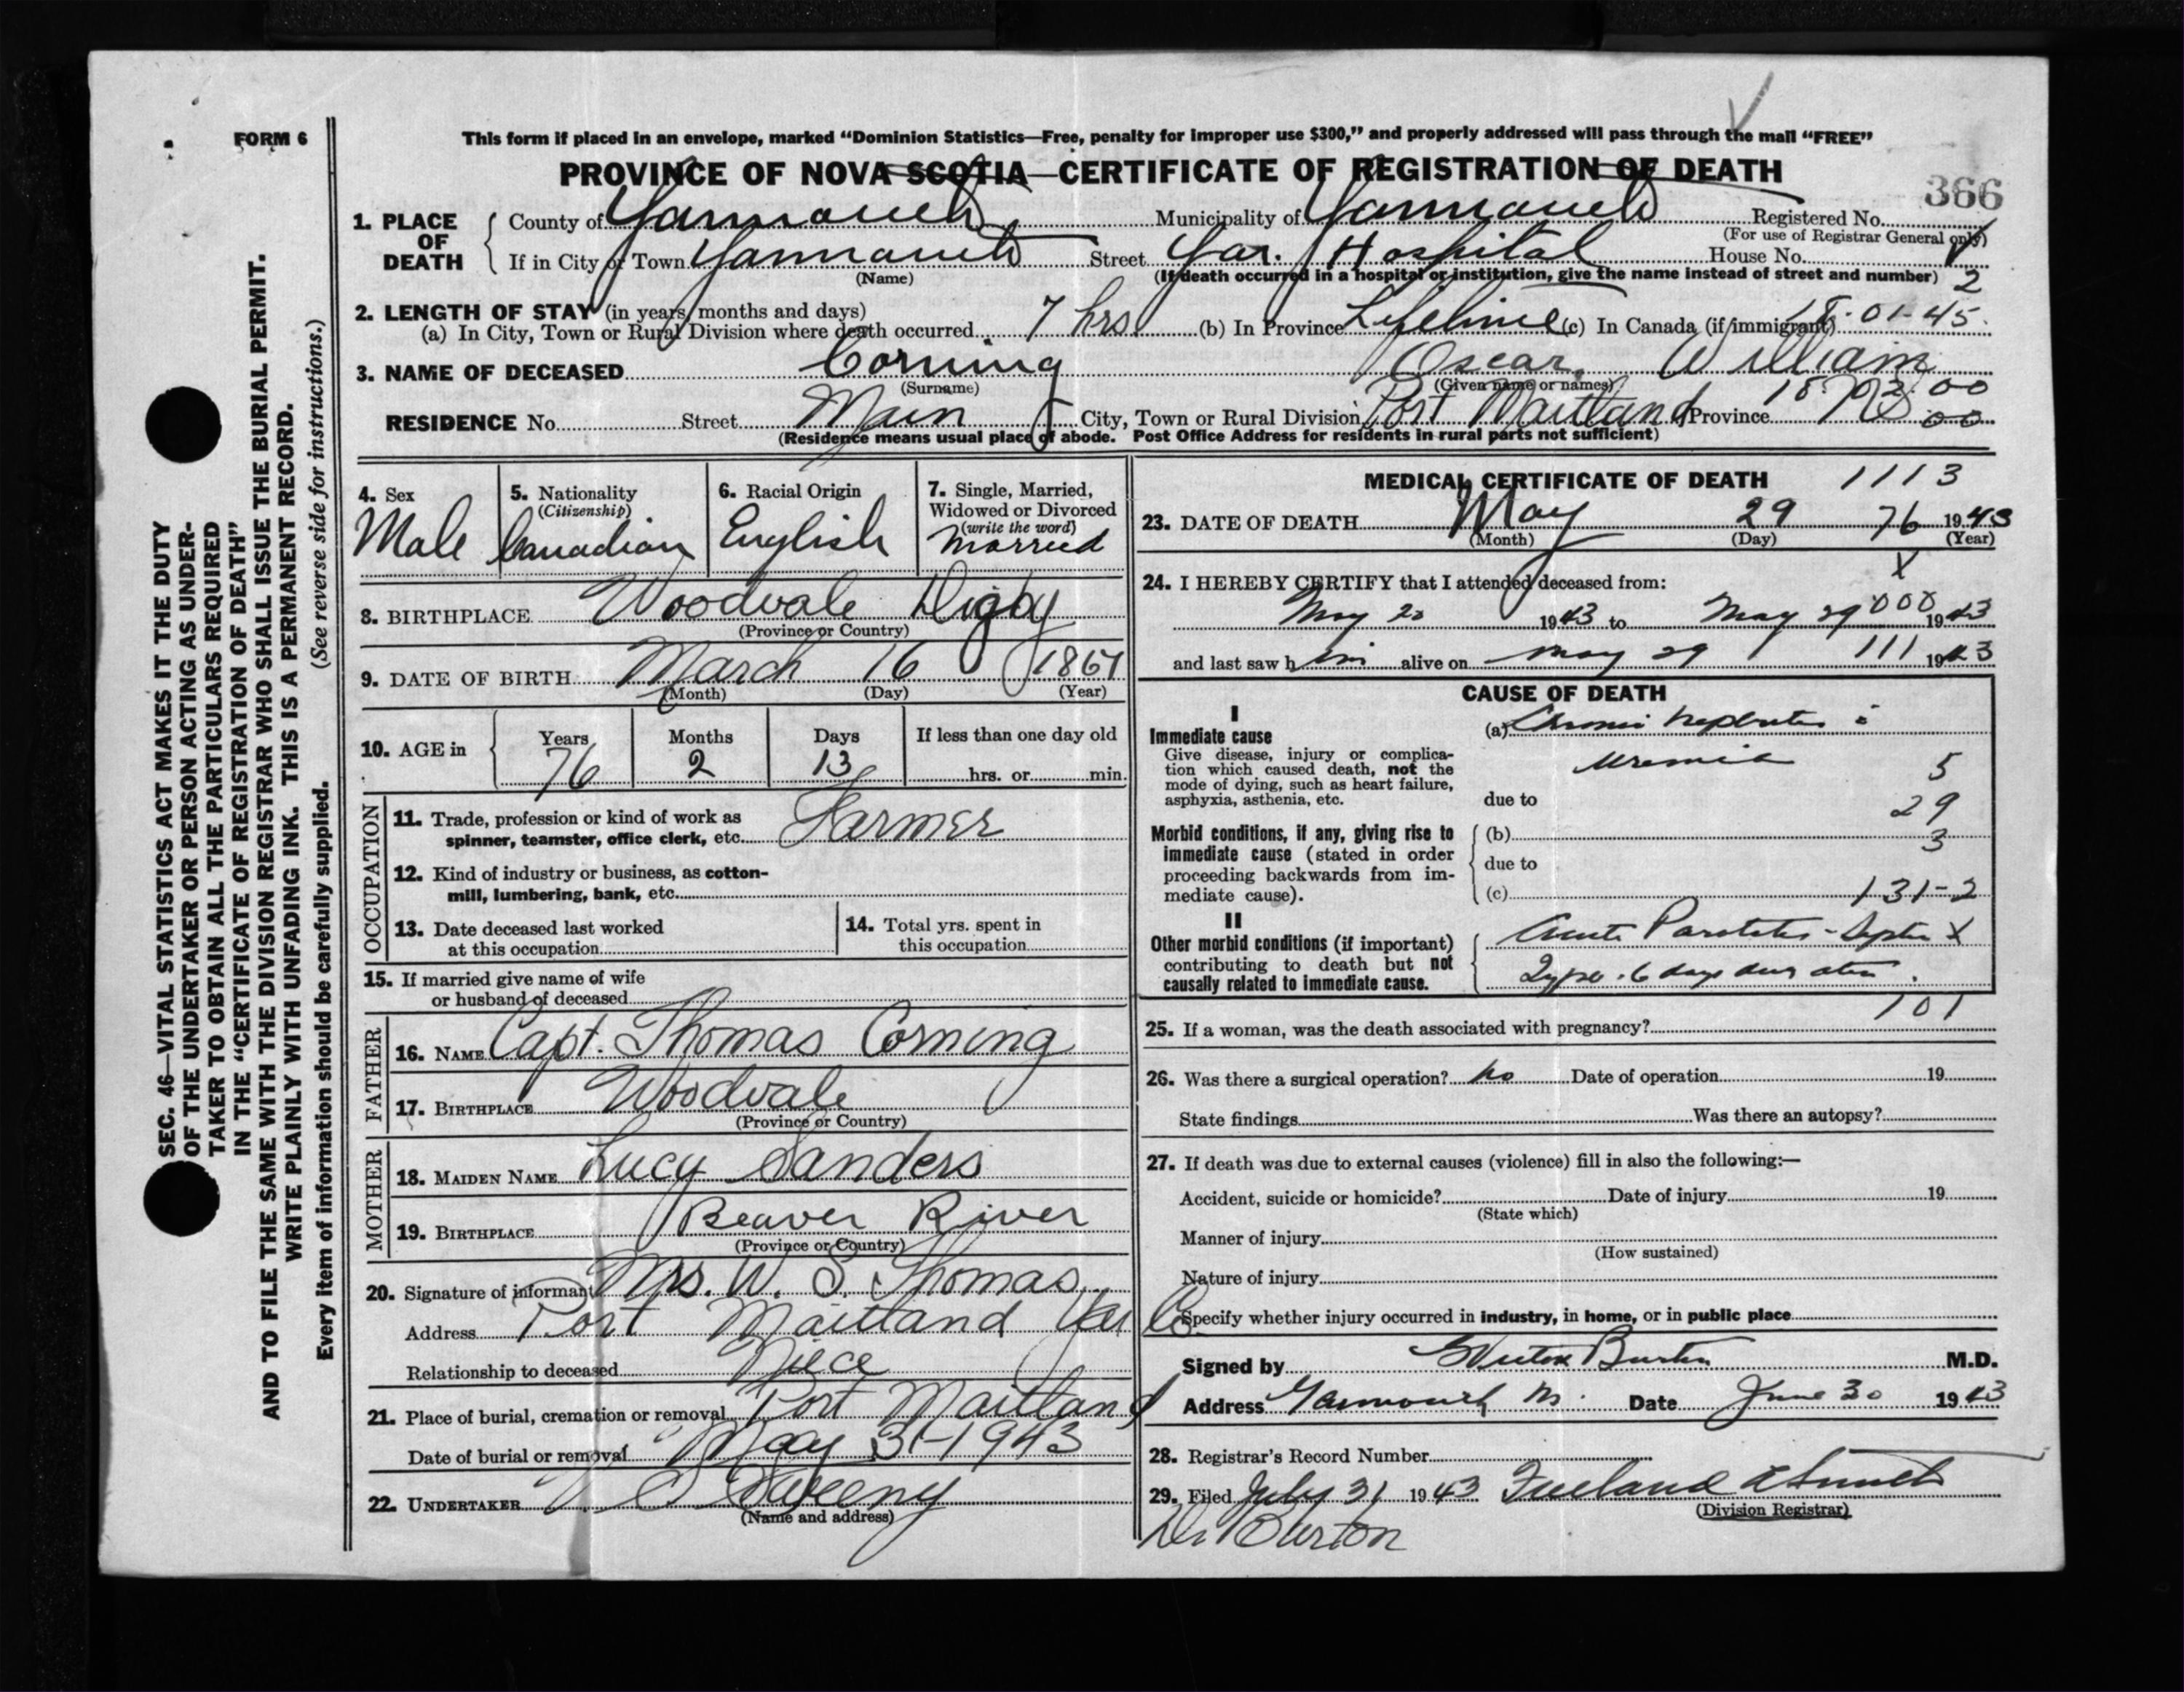 FORM 6
This form if placed in an envelope, marked “Dominion Statistics—Free, penalty for improper use $300,” and properly addressed will pass through the mail “FREE”
PROVINCE OF NOVA SCOTIA—CERTIFICATE OF REGISTRATION OF DEATH
366
1. PLACE OF DEATH { County of Yarmouth Municipality of Yarmouth Registered No.
(For use of Registrar General only)
If in City or Town Yarmouth Street Yar. Hospital House No.
(Name) (If death occurred in a hospital or institution, give the name instead of street and number) 2
2. LENGTH OF STAY (in years, months and days)
(a) In City, Town or Rural Division where death occurred 7 hrs (b) In Province Lifetime (c) In Canada (if immigrant) 18-01-45
3. NAME OF DECEASED Corning Oscar William
(Surname) (Given name or names)
RESIDENCE No. Street Main City, Town or Rural Division Port Maitland Province NS 18.02.00
00
(Residence means usual place of abode. Post Office Address for residents in rural parts not sufficient)
4. Sex
Male
5. Nationality
(Citizenship)
Canadian
6. Racial Origin
English
7. Single, Married,
Widowed or Divorced
(write the word)
Married
8. BIRTHPLACE Woodvale Digby
(Province or Country)
9. DATE OF BIRTH March 16 1867
(Month) (Day) (Year)
10. AGE in { Years Months Days If less than one day old
76 2 13 hrs. or min.
OCCUPATION
11. Trade, profession or kind of work as
spinner, teamster, office clerk, etc. Farmer
12. Kind of industry or business, as cotton-
mill, lumbering, bank, etc.
13. Date deceased last worked
at this occupation
14. Total yrs. spent in
this occupation
15. If married give name of wife
or husband of deceased
FATHER
16. NAME Capt. Thomas Corning
17. BIRTHPLACE Woodvale
(Province or Country)
MOTHER
18. MAIDEN NAME Lucy Sanders
19. BIRTHPLACE Beaver River
(Province or Country)
20. Signature of informant Mrs. W. S. Thomas
Address Port Maitland Yar Co.
Relationship to deceased Niece
21. Place of burial, cremation or removal Port Maitland
Date of burial or removal May 31-1943
22. UNDERTAKER Sweeny
(Name and address)
MEDICAL CERTIFICATE OF DEATH 1113
23. DATE OF DEATH May 29 76 1943
(Month) (Day) (Year)
X
24. I HEREBY CERTIFY that I attended deceased from:
May 20 1943 to May 29 000 1943
and last saw him alive on May 29 111 1943
CAUSE OF DEATH
I
Immediate cause
Give disease, injury or complica-
tion which caused death, not the
mode of dying, such as heart failure,
asphyxia, asthenia, etc.
(a) Chronic Nephritis
Uremia 5
due to 29
Morbid conditions, if any, giving rise to
immediate cause (stated in order
proceeding backwards from im-
mediate cause).
(b) 3
due to
(c) 131-2
II
Other morbid conditions (if important)
contributing to death but not
causally related to immediate cause.
Acute Parotitis - Septic X
Type. 6 days duration.
101
25. If a woman, was the death associated with pregnancy?
26. Was there a surgical operation? No Date of operation 19
State findings Was there an autopsy?
27. If death was due to external causes (violence) fill in also the following:—
Accident, suicide or homicide? Date of injury 19
(State which)
Manner of injury
(How sustained)
Nature of injury
Specify whether injury occurred in industry, in home, or in public place
Signed by Burton M.D.
Address Yarmouth Date June 30 1943
28. Registrar's Record Number
29. Filed July 31 1943
(Division Registrar)
Dr Burton
SEC. 46—VITAL STATISTICS ACT MAKES IT THE DUTY
OF THE UNDERTAKER OR PERSON ACTING AS UNDER-
TAKER TO OBTAIN ALL THE PARTICULARS REQUIRED
IN THE “CERTIFICATE OF REGISTRATION OF DEATH”
AND TO FILE THE SAME WITH THE DIVISION REGISTRAR WHO SHALL ISSUE THE BURIAL PERMIT.
WRITE PLAINLY WITH UNFADING INK. THIS IS A PERMANENT RECORD.
Every item of information should be carefully supplied. (See reverse side for instructions.)